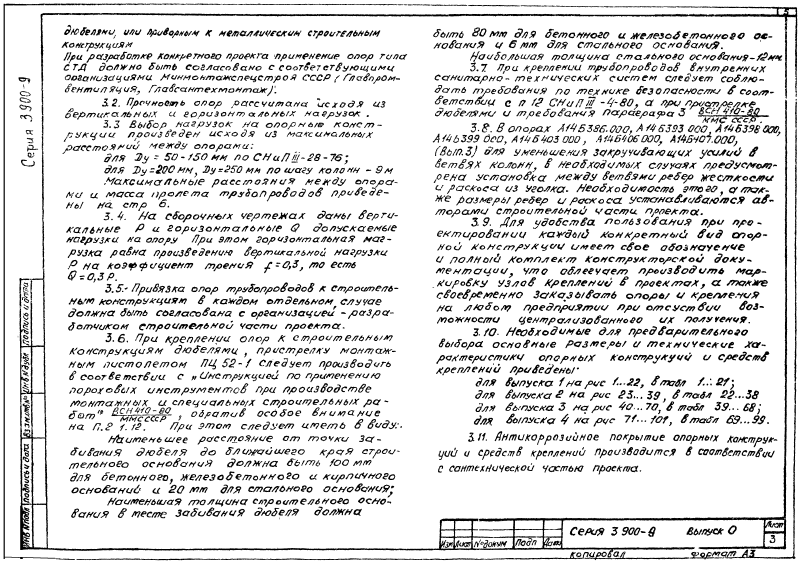 2
Серия 3 900-9
дюбелями, или приварным к металлическим строительным
конструкциям
При разработке конкретного проекта применение опор типа
СТД должно быть согласовано с соответствующими
организациями Минмонтажспецстроя СССР (Главпром-
вентиляция, Главсантехмонтаж).
3.2. Прочность опор рассчитана исходя из
вертикальных и горизонтальных нагрузок.
3.3 Выбор нагрузок на опорные конст-
рукции произведен исходя из максимальных
расстояний между опорами:
для Ду = 50-150 мм по СНиП III-28-76;
для Ду=200 мм, Ду=250 мм по шагу колонн - 9 м
Максимальные расстояния между опора-
ми и масса пролета трубопроводов приведе-
ны на стр 6.
3.4. На сборочных чертежах даны верти-
кальные Р и горизонтальные Q допускаемые
нагрузки на опору При этом горизонтальная наг-
рузка равна произведению вертикальной нагрузки
Р на коэффициент трения f=0,3, то есть
Q=0,3 Р.
3.5. Привязка опор трубопроводов к строитель-
ным конструкциям в каждом отдельном случае
должна быть согласована с организацией-разра-
ботчиком строительной части проекта.
3.6. При креплении опор к строительным
конструкциям дюбелями, пристрелку монтаж-
ным пистолетом ПЦ 52-1 следует производить
в соответствии с „Инструкцией по применению
пороховых инструментов при производстве
монтажных и специальных строительных ра-
бот" ВСН 410-80 / ММС СССР, обратив особое внимание
на П.2 1.12. При этом следует иметь в виду:
Наименьшее расстояние от точки за-
бивания дюбеля до ближайшего края строи-
тельного основания должна быть 100 мм
для бетонного, железобетонного и кирпичного
оснований и 20 мм для стального основания;
Наименьшая толщина строительного осно-
вания в месте забивания дюбеля должна
быть 80 мм для бетонного и железобетонного ос-
нования и 6 мм для стального основания.
Наибольшая толщина стального основания-12мм
3.7. При креплении трубопроводов внутренних
санитарно-технических систем следует соблю-
дать требования по технике безопасности в соот-
ветствии с п 12 СНиП III-4-80, а при пристрелке
дюбелями и требования параграфа 3 ВСН 410-80 / ММС СССР.
3.8. В опорах А14Б386.000, А14Б393 000, А14Б398 000,
А14Б399 000, А14Б403 000, А14Б406 000, А14Б407.000,
(вып.3) для уменьшения закручивающих усилий в
ветвях колонн, в необходимых случаях предусмот-
рена установка между ветвями ребер жесткости
и раскоса из уголка. Необходимость этого, а так-
же размеры ребер и раскоса устанавливаются ав-
торами строительной части проекта.
3.9. Для удобства пользования при про-
ектировании каждый конкретный вид опор-
ной конструкции имеет свое обозначение
и полный комплект конструкторской доку-
ментации, что облегчает производить мар-
кировку узлов креплений в проектах, а также
своевременно заказывать опоры и крепления
на любом предприятии при отсуствии воз-
можности централизованного их получения.
3.10. Необходимые для предварительного
выбора основные размеры и технические ха-
рактеристики опорных конструкций и средств
креплений приведены:
для выпуска 1 на рис 1...22, в табл 1...21;
для выпуска 2 на рис 23...39, в табл 22...38
для выпуска 3 на рис 40...70, в табл 39...68;
для выпуска 4 на рис 71...101, в табл 69...99.
3.11. Антикоррозийное покрытие опорных конструк-
ций и средств креплений производится в соответствии
с сантехнической частью проекта.
Инв № подл
Подпись и дата
Взам инв №
Инв № дубл
Подпись и дата
Изм Лист № докум Подп Дата
Серия 3 900-9 Выпуск 0
Лист
3
Копировал Формат А3